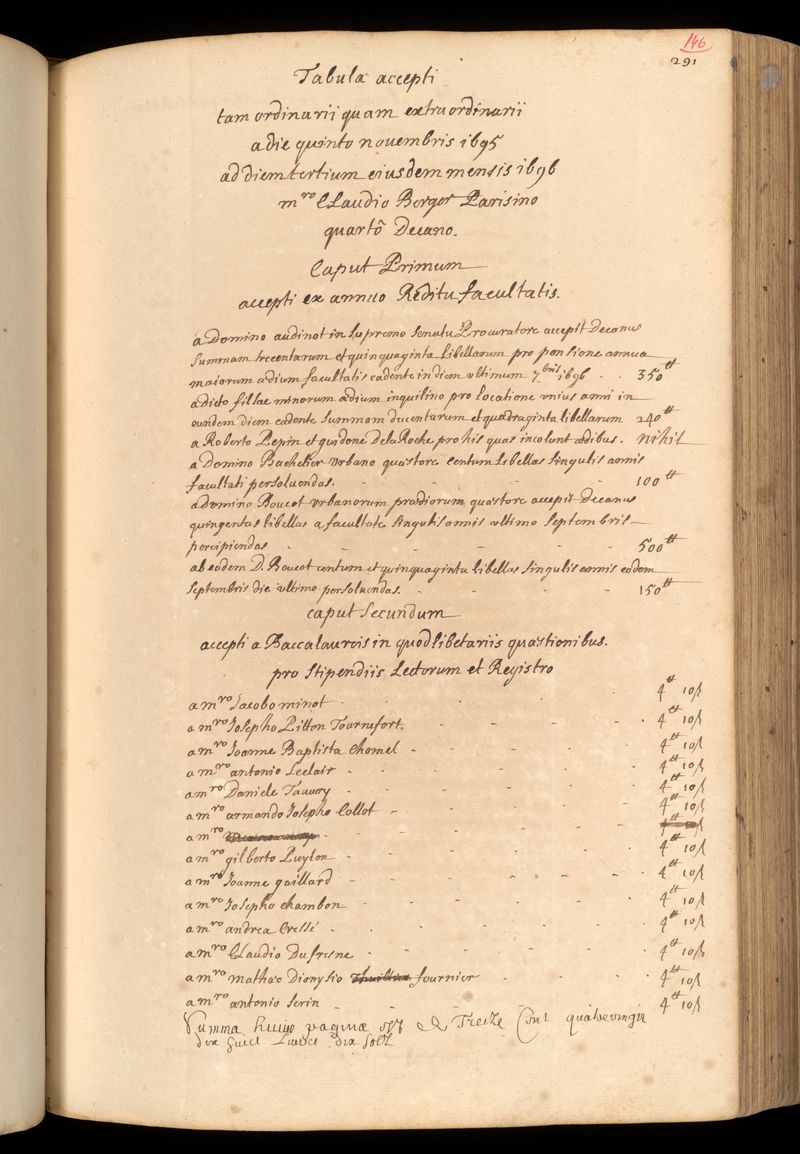 146
291
Tabula accepti
tam ordinarii quam extraordinarii
a die quinto nouembris 1695
ad diem tertium eiusdem mensis 1696
mro Claudio Berger Parisino
quartô Decano.
Caput Primum
accepti ex annuo Reditu facultatis.
a Domino audinot in supremo senatu Procuratore accepit Decanus
summam trecentarum et quinquaginta libellarum pro pensione annua
maiorum ædium facultatis cadente in diem vltimum 7bris 1696 - - 350tt
a dicto fillæ minorum ædium inquilino pro locatione vnius anni in
eundem diem cadente summam ducentarum et quadraginta libellarum 240tt
a Roberto Pepin et guidone DelaRoche pro his quas incolunt ædibus. nihil
a Domino Bachelier vrbano quæstore centum libellas singulis annis
facultati persoluendas. - - - - 100tt
a domino Boucot vrbanorum prædiorum quæstore accepit Decanus
quingentas libellas a facultate singulis annis vltimo septembris
percipiendas - - - - - 500tt
ab eodem D. Boucot centum et quinquaginta libellas singulis annis eodem
septembris die vltimo persoluendas. - - - 150tt
caput secundum
accepti a Baccalaureis in quodlibetariis quæstionibus.
pro stipendiis Lectorum et Registro
a mro Iacobo minot - - - 4tt 10ſ
a mro Iosepho Pitton Tournefort. - - - 4tt 10ſ
a mro Ioanne Baptista Chomel - - - 4tt 10ſ
a mro antonio Leclair - - - 4tt 10ſ
a mro Daniele Tauury - - - 4tt 10ſ
a mro armando Iosepho Collot - - - 4tt 10ſ
a mro - - - 4tt 10ſ
a mro gilberto Puylon - - - 4tt 10ſ
a mro Ioanne gaillard - - - 4tt 10ſ
a mro Iosepho chambon - - - 4tt 10ſ
a mro andrea Cressé - - - 4tt 10ſ
a mro Claudio Dufresne - - - 4tt 10ſ
a mro mathæo Dionysio fournier - - - 4tt 10ſ
a mro antonio serin - - - 4tt 10ſ
Summa huius paginæ Treize Cent quatrevingt
dix huict Liures dix solz